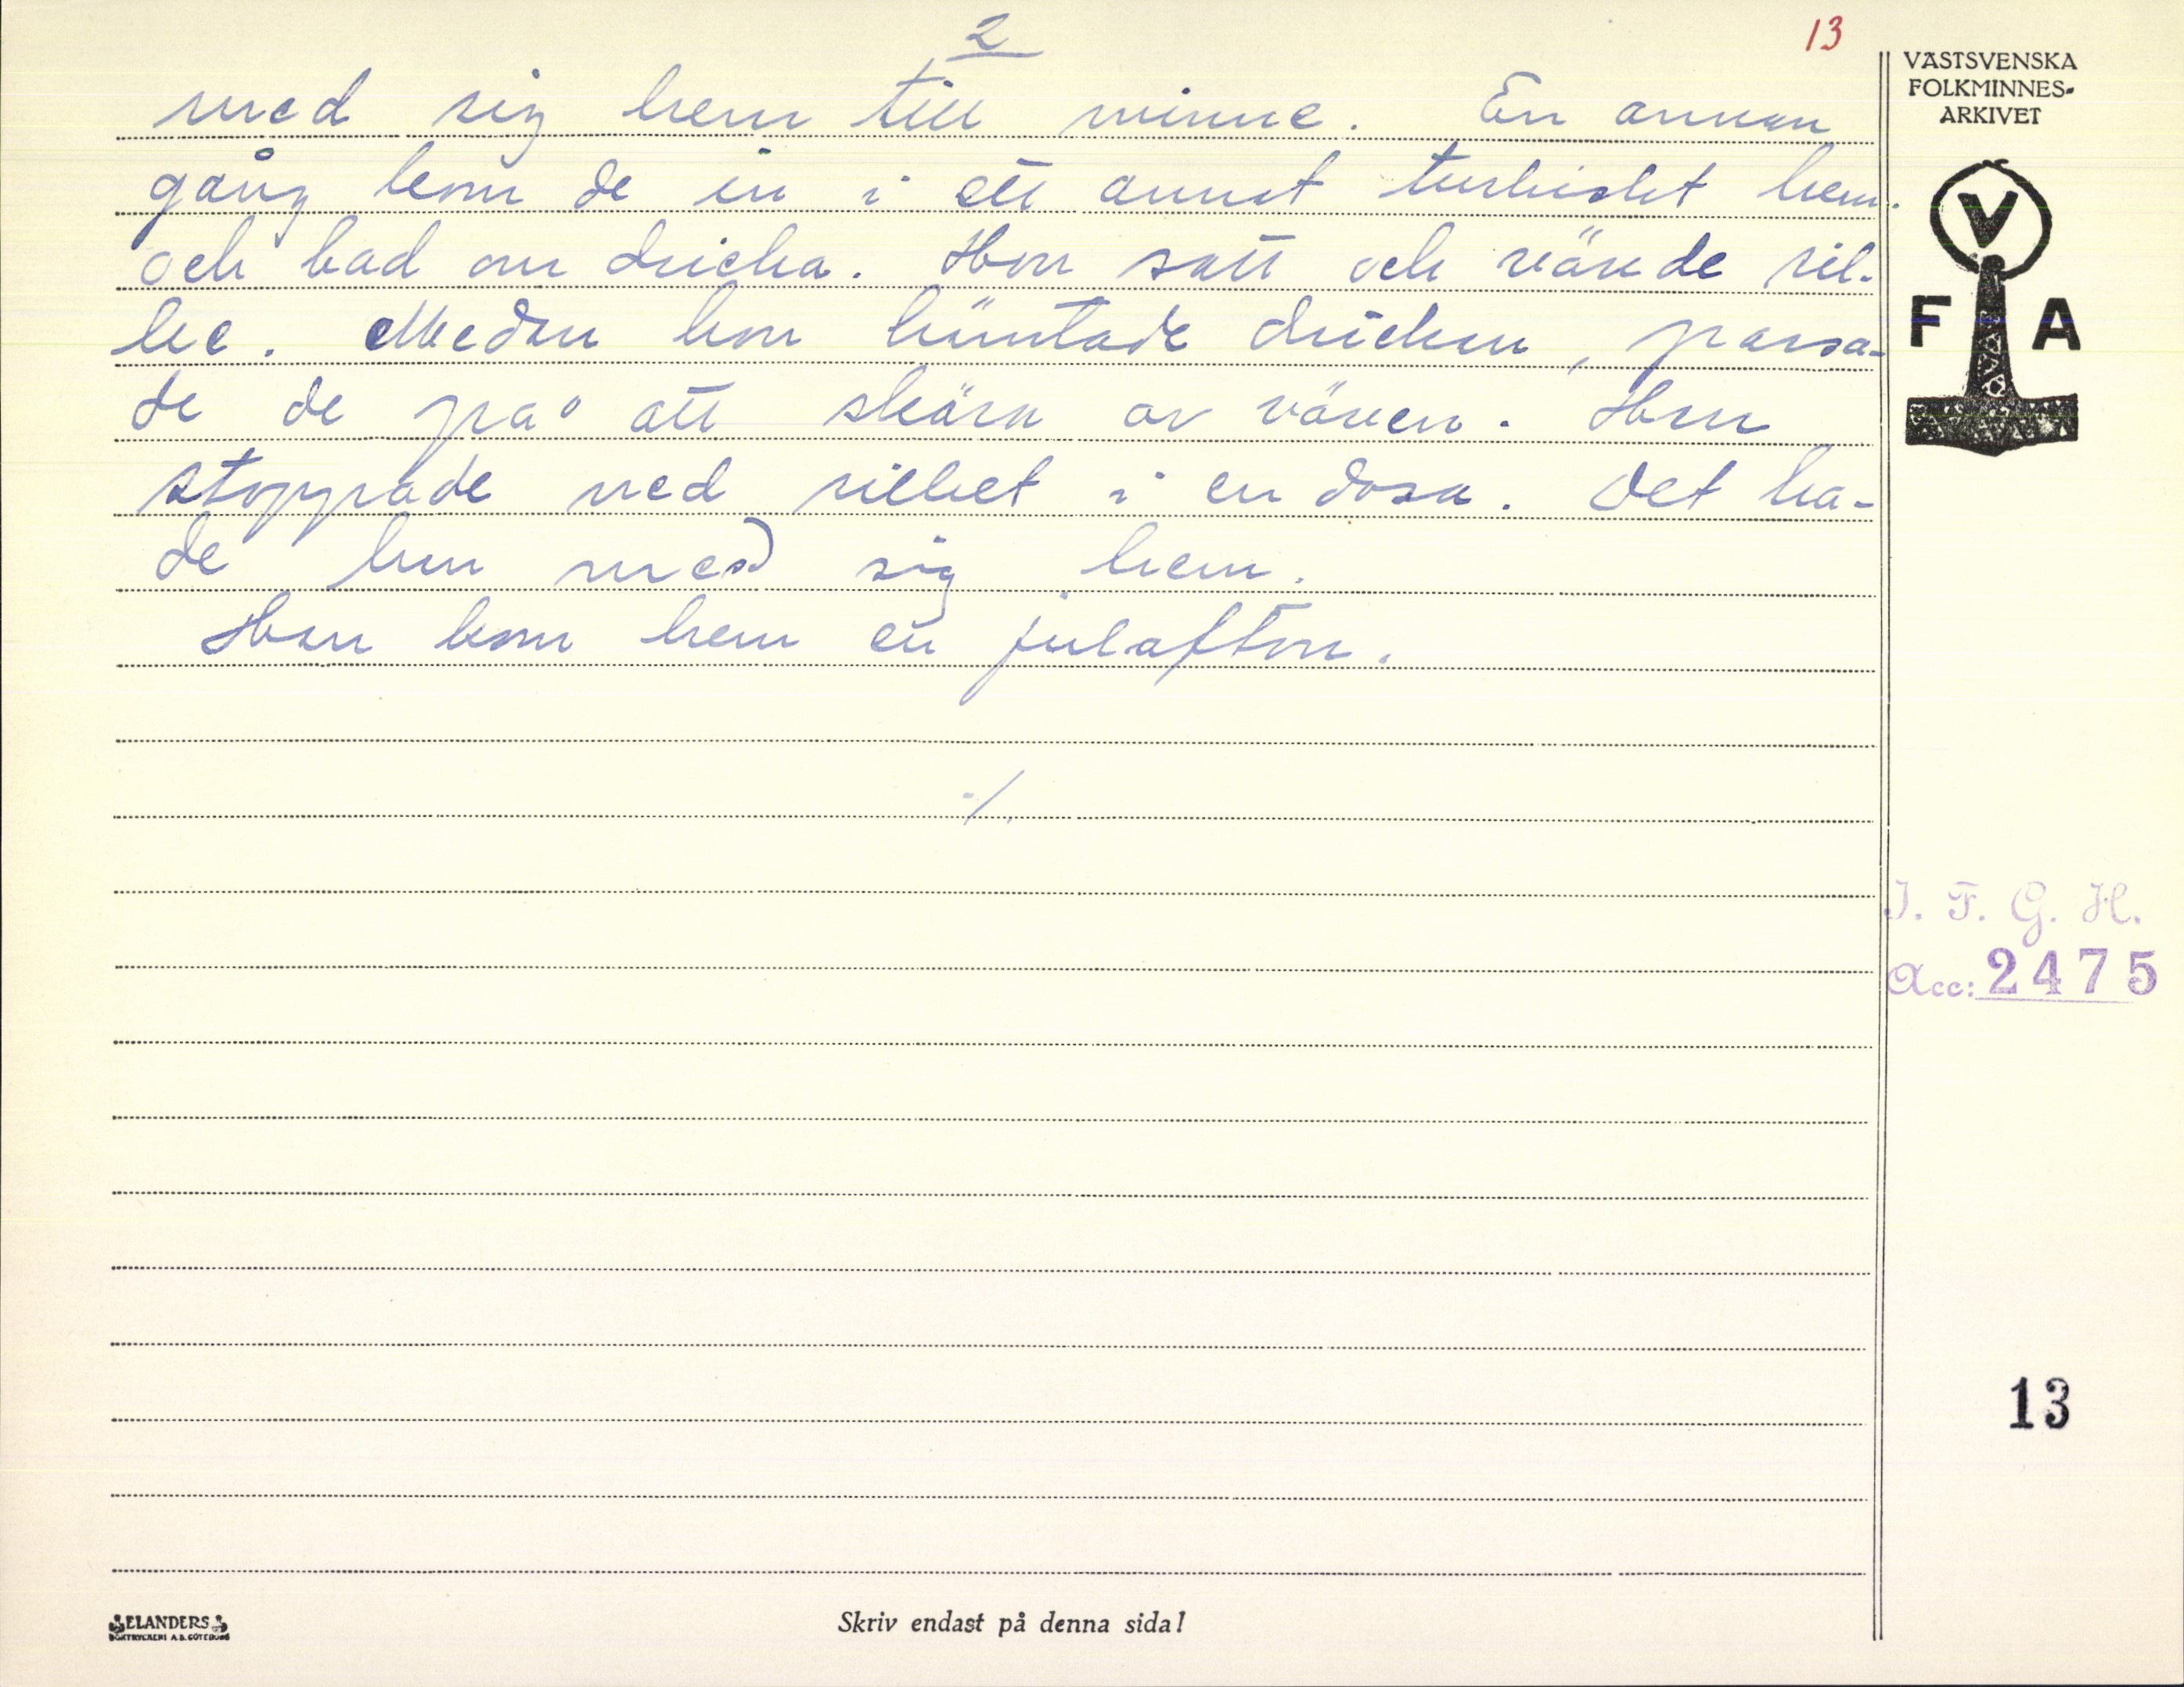 2
13
med sig hem till minne. En annan
gång kom de in i ett annat turkiskt hem.
och bad om dricka. Hon satt och vävde sil-
ke. Medan hon hämtade drickan, passa-
de de på att skära av väven. Han
stoppade ned silket i en dosa. Det ha-
de han med sig hem.
Han kom hem en julafton.
./.
VÄSTSVENSKA
FOLKMINNES-
ARKIVET
V
F A
I. F. G. H.
Acc: 2475
13
ELANDERS
BOKTRYCKERI A.B. GÖTEBORG
Skriv endast på denna sida!